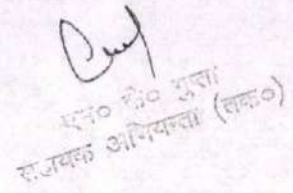 एन० सी० गुप्ता
सहायक अभियन्ता (तक०)